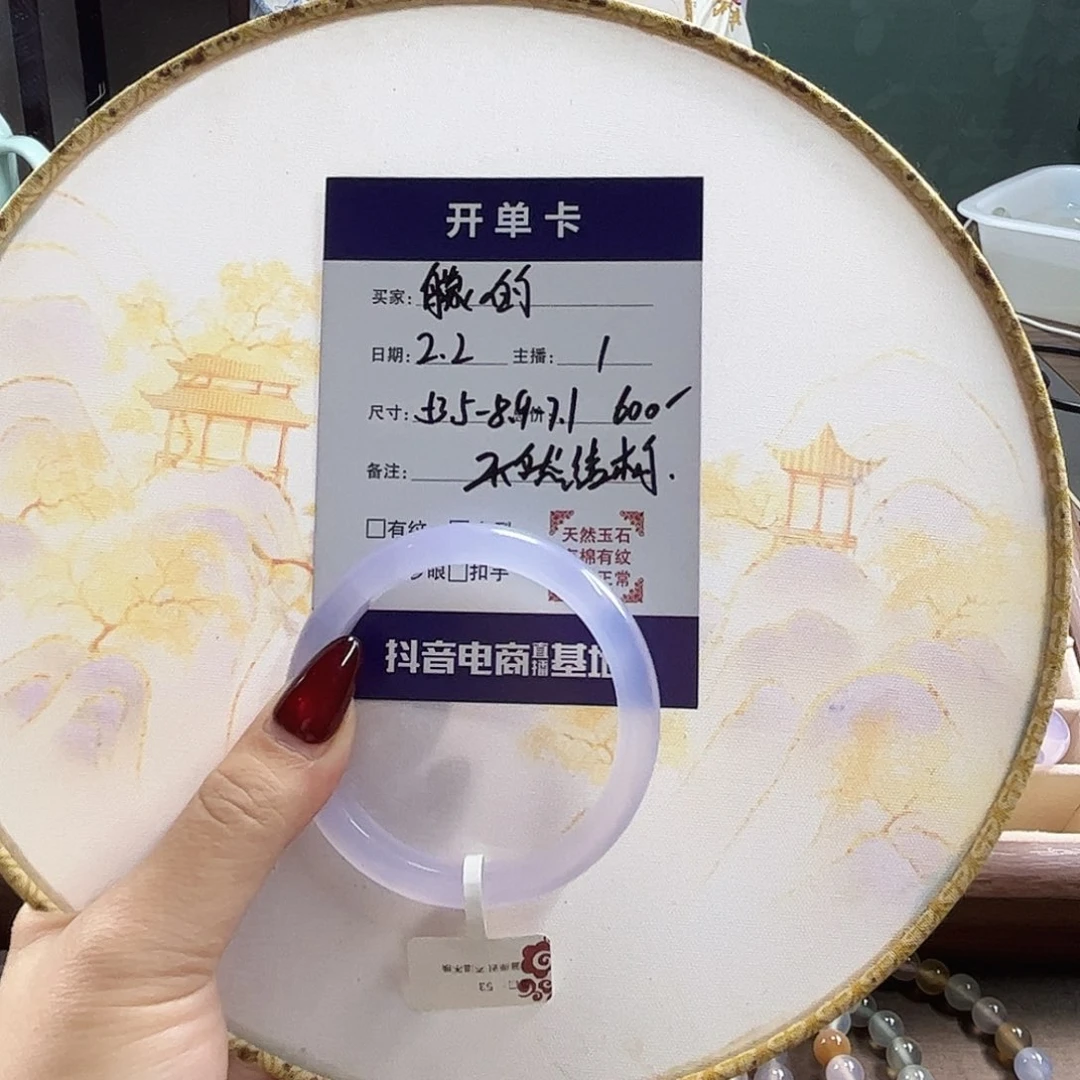 开单卡
买家: 朦的
日期: 2.2 主播: 1
尺寸: 53.5-8.9-7.1 600
备注: 天然结构.
□有纹
天然玉石
棉有纹
正常
眼□扣手
抖音电商直播基地
53